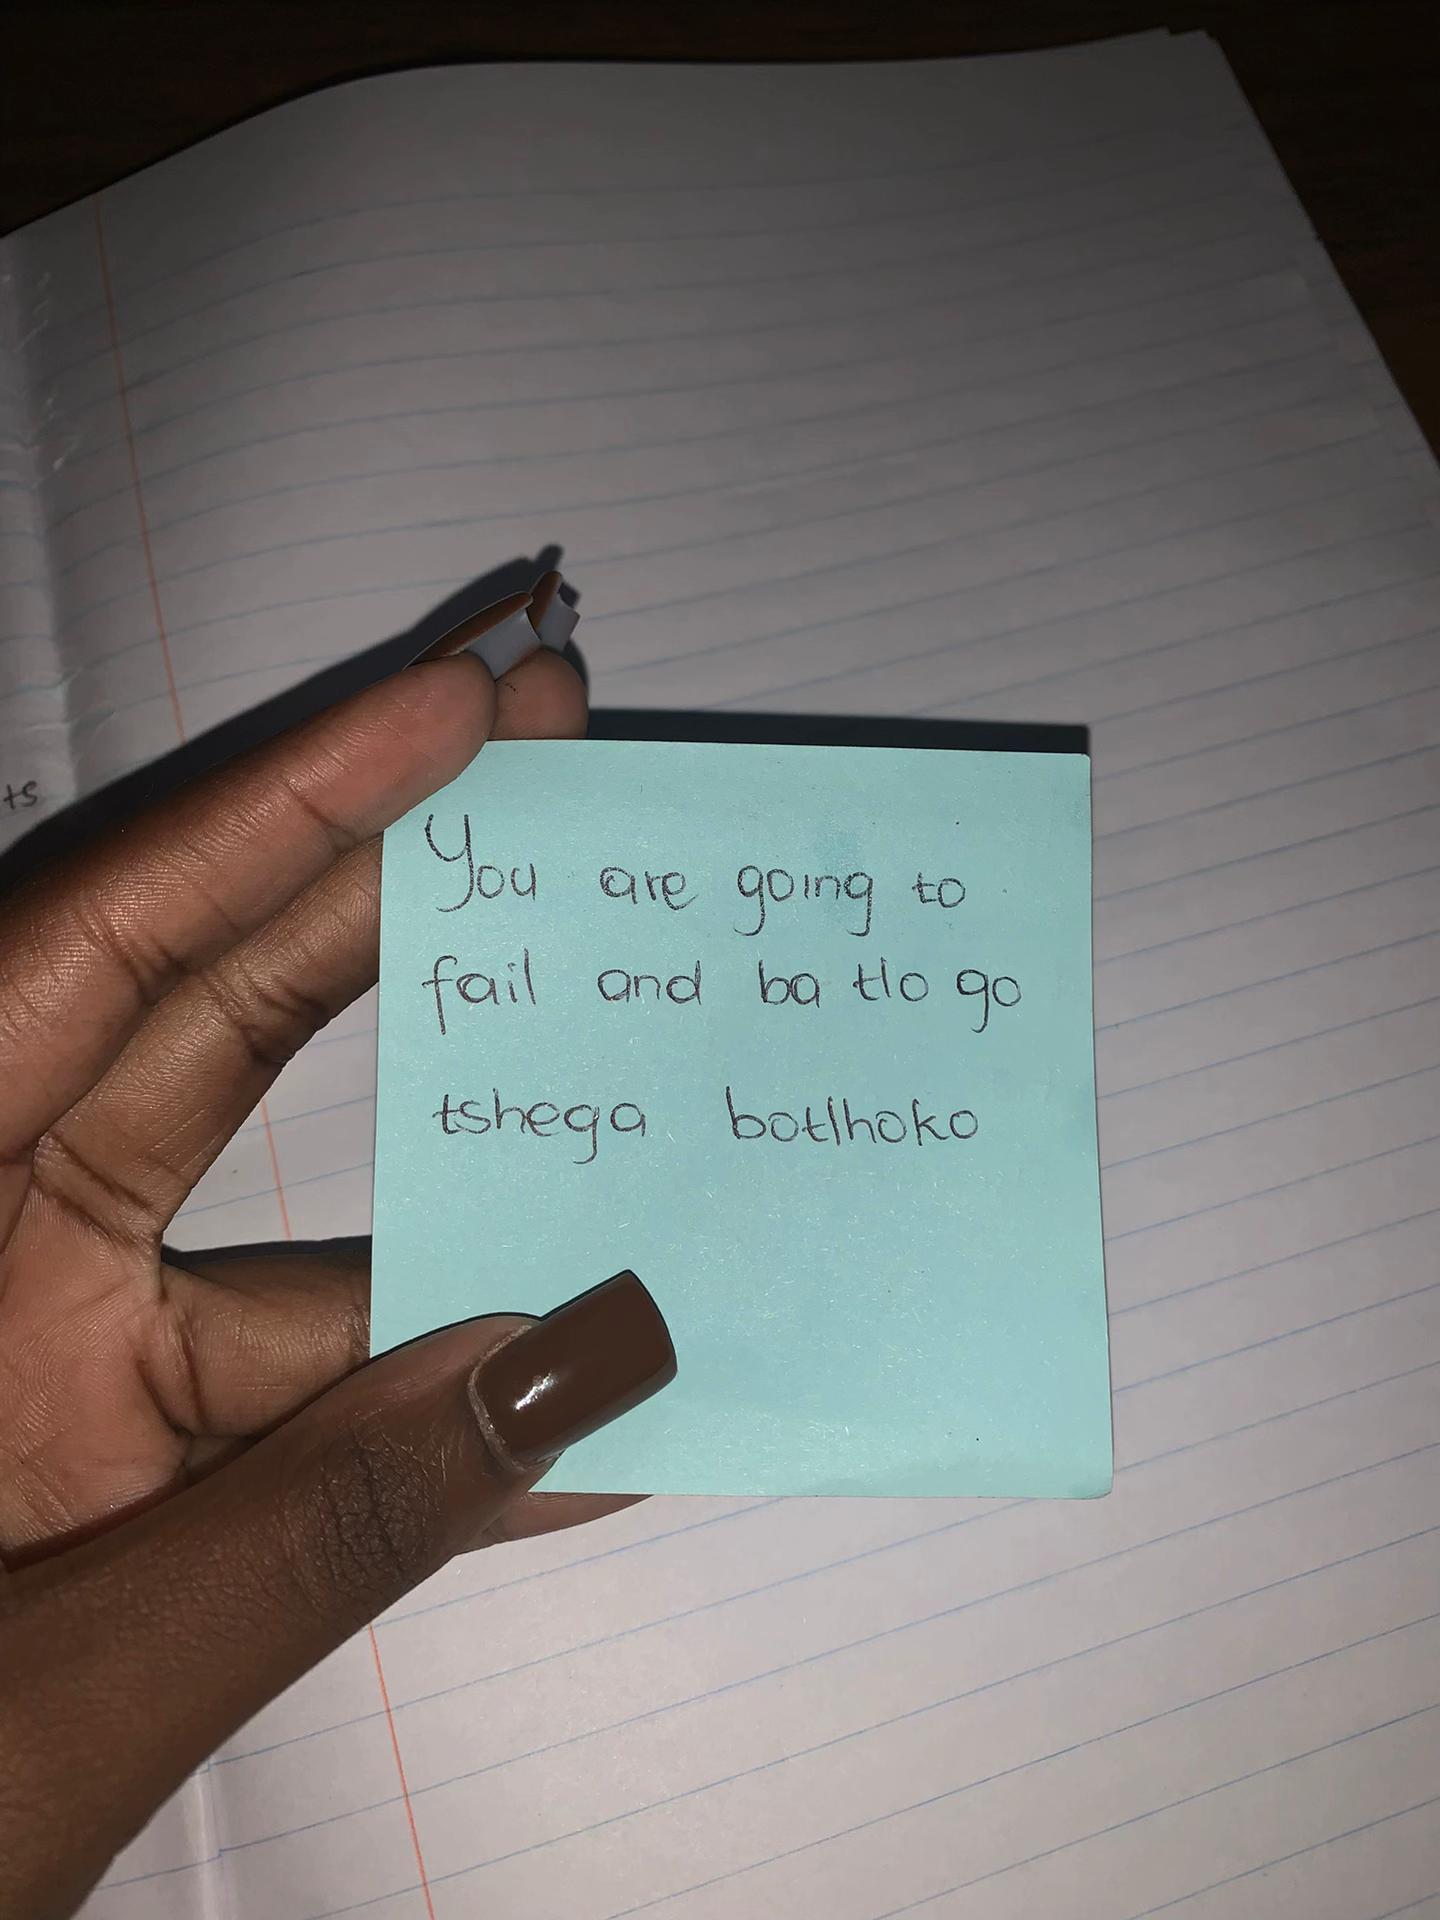 ts
You are going to
fail and ba tlo go
tshega botlhoko